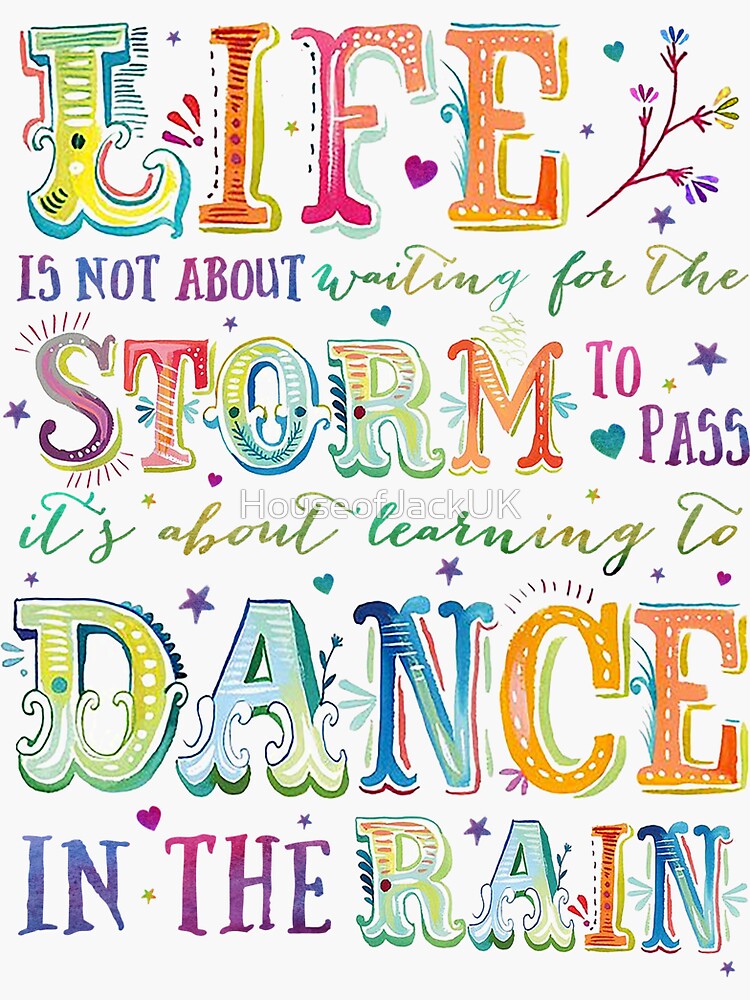 LIFE
IS NOT ABOUT waiting for the
STORM TO PASS
it's about learning to
HouseofJackUK
DANCE
IN THE RAIN